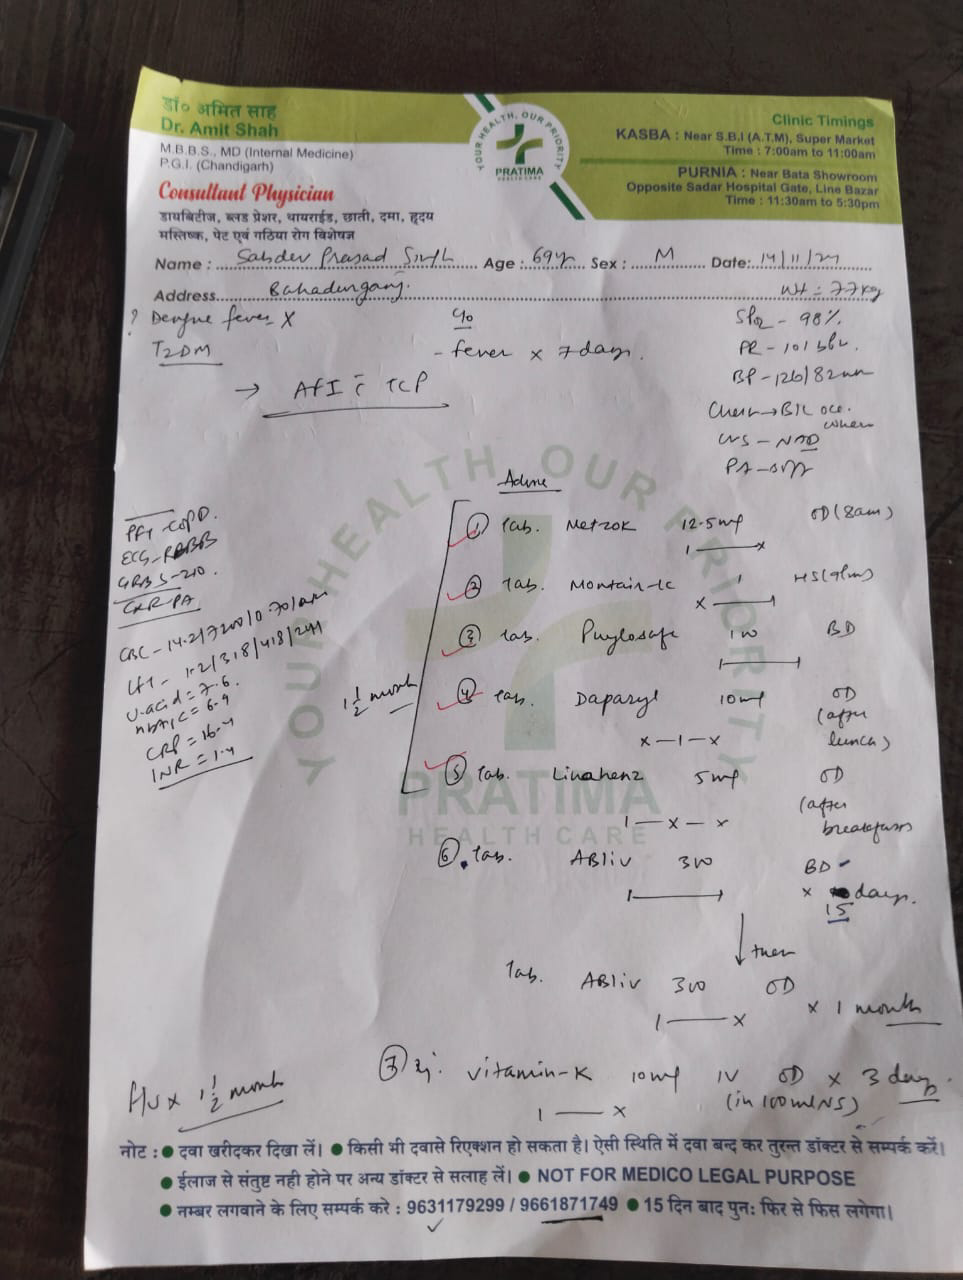 डॉ० अमित साह
Dr. Amit Shah
M.B.B.S., MD (Internal Medicine)
P.G.I. (Chandigarh)
Consultant Physician
डायबिटीज, ब्लड प्रेशर, थायराईड, छाती, दमा, हृदय
मस्तिष्क, पेट एवं गठिया रोग विशेषज्ञ
YOUR HEALTH, OUR PRIORITY
PRATIMA
HEALTH CARE
Clinic Timings
KASBA : Near S.B.I (A.T.M), Super Market
Time : 7:00am to 11:00am
PURNIA : Near Bata Showroom
Opposite Sadar Hospital Gate, Line Bazar
Time : 11:30am to 5:30pm
Name : Sahdev Prasad Singh Age : 69y Sex : M Date: 14/11/24
Address Bahadurganj. Wt = 77kg
? Dengue fever X
T2DM
C/o
- fever x 7 days.
→ AFI c̄ TCP
SPO2 - 98%.
PR - 101 b/m.
BP - 126/82mm
Chest → B/L occ.
CVS - NAD
PA - soft
Advice
PFT - COPD.
ECG - RBBB
GRBS - 210.
CXR-PA
CBC - 14.2/7200/0.70
LFT - 1.2/318/418/241
U-acid = 7.6
HbA1C = 6.9
CRP = 16.4
INR = 1.4
1 1/2 month
① Tab. Metzok 12.5mg OD (8am)
1 — x
② Tab. Montair-LC 1 HS (9pm)
x — 1
③ Tab. 100 BD
1 — 1
④ Tab. Daparyl 10mg OD
(after
lunch)
x - 1 - x
⑤ Tab. 5mg OD
(after
breakfast)
1 - x - x
⑥ Tab. ABliv 300 BD
1 — 1
x 15 days.
↓ then
Tab. ABliv 300 OD
x 1 month
1 — x
⑦ Inj. Vitamin-K 10mg IV OD x 3 days.
(in 100ml NS)
1 — x
F/U x 1 1/2 month
YOUR HEALTH OUR PRIORITY
PRATIMA
HEALTH CARE
नोट : ● दवा खरीदकर दिखा लें। ● किसी भी दवासे रिएक्शन हो सकता है। ऐसी स्थिति में दवा बन्द कर तुरन्त डॉक्टर से सम्पर्क करें।
● ईलाज से संतुष्ट नही होने पर अन्य डॉक्टर से सलाह लें। ● NOT FOR MEDICO LEGAL PURPOSE
● नम्बर लगवाने के लिए सम्पर्क करे : 9631179299 / 9661871749 ● 15 दिन बाद पुनः फिर से फिस लगेगा।